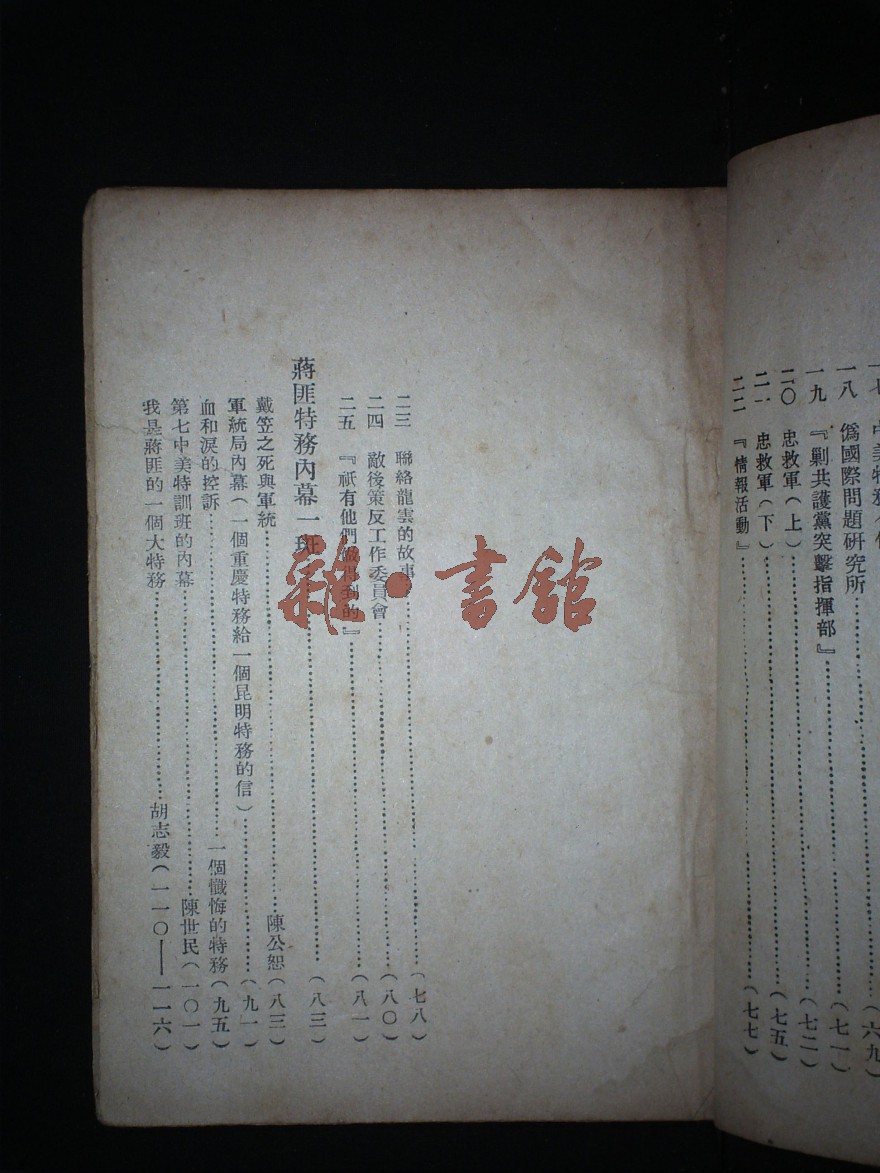 一八 僞國際問題研究所(七一)
一九 『剿共護黨突擊指揮部』(七二)
二〇 忠救軍(上)(七五)
二一 忠救軍(下)(七七)
二二 『情報活動』
二三 聯絡龍雲的故事(七八)
二四 敵後策反工作委員會(八〇)
二五 『祇有他們做得到的』(八一)
蔣匪特務內幕一斑(八三)
戴笠之死與軍統陳公恕(八三)
軍統局內幕(一個重慶特務給一個昆明特務的信)(九一)
血和淚的控訴一個懺悔的特務(九五)
第七中美特訓班的內幕陳世民(一〇一)
我是蔣匪的一個大特務胡志毅(一一〇——一一六)
雜·書舘